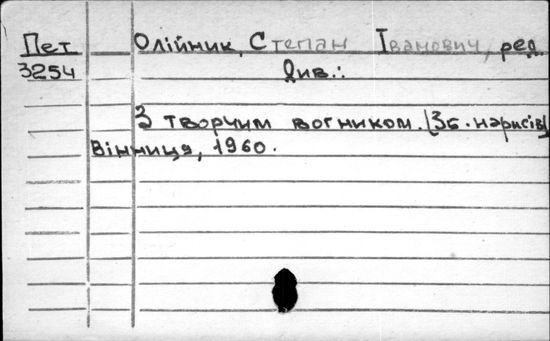 Пет Олійник, Степан Іванович, ред.
3254 Див.:
З творчим вогником. [Зб. нарисів]
Вінниця, 1960.